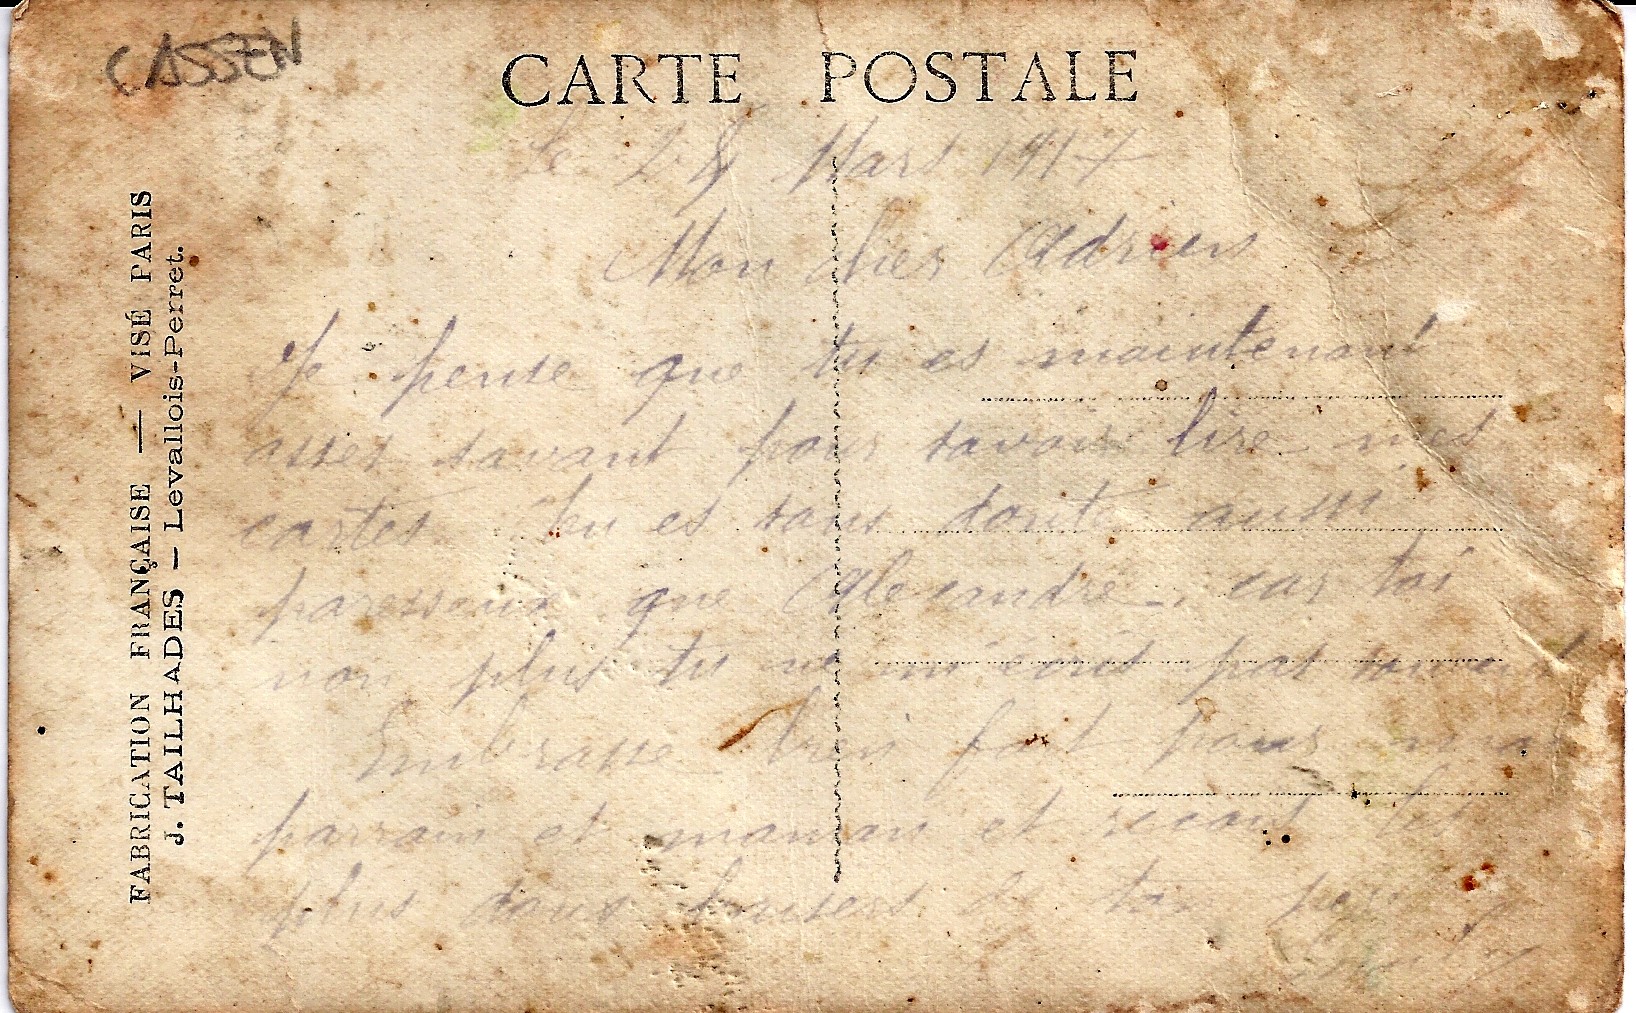 CASSEN
CARTE POSTALE
FABRICATION FRANÇAISE — VISÉ PARIS
J. TAILHADES — Levallois-Perret.
Le 28 Mars 1917
Mon cher Adrien
Je pense que tu es maintenant
assez savant pour savoir lire mes
cartes tu es sans doute aussi
paresseux que Alexandre, car toi
non plus tu ne m'écrit pas souvent
Embrasse bien fort pour moi
parrain et maman et recois les
plus doux baisers de ton père